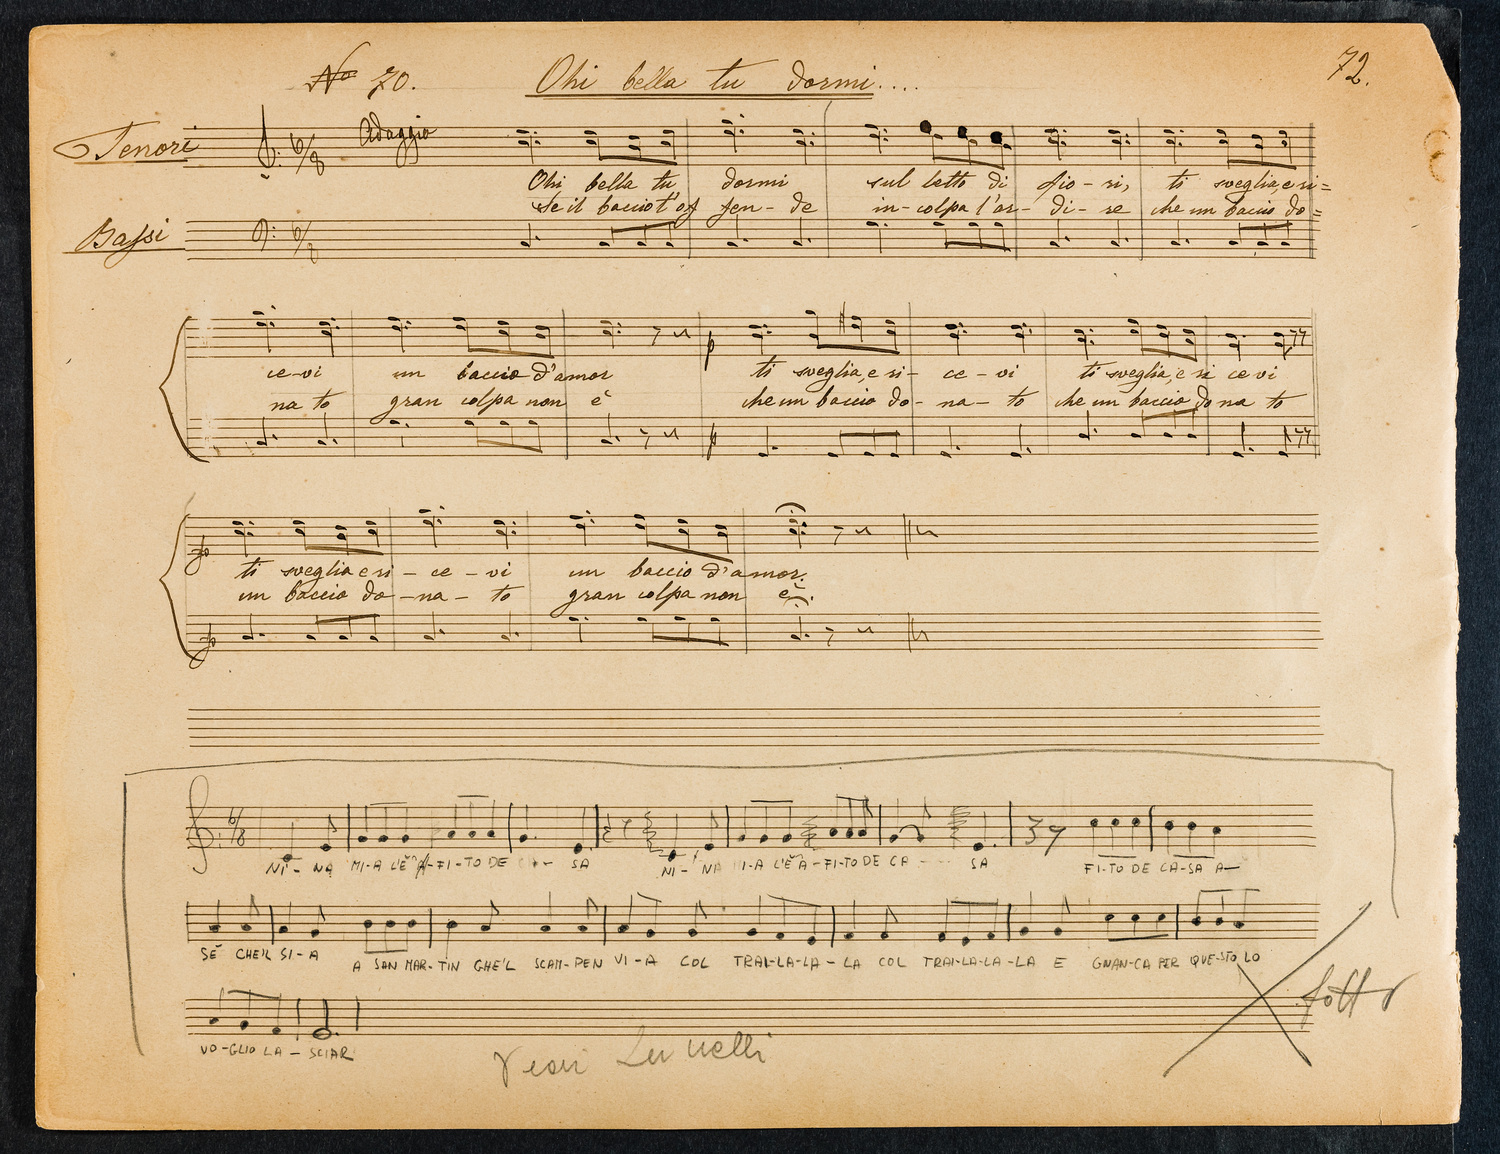 No 70. Ohi bella tu dormi.... 72.
Tenori 6/8 Adaggio
Ohi bella tu dormi sul letto di fio-ri, ti sveglia, e ri=
Se il baccio t'of fen-de in-colpa l'ar-di-re che un baccio do=
Bassi 6/8
ce-vi un baccio d'amor ti sveglia, e ri-ce-vi ti sveglia, e ri cevi
na to gran colpa non è che un baccio do-na-to che un baccio do na to
ti sveglia e ri-ce-vi un baccio d'amor.
un baccio do-na-to gran colpa non è.
6/8
NI-NA MI-A L'È A-FI-TO DE SA NI-NA MI-A L'È A-FI-TO DE CA- SA FI-TO DE CA-SA A-
SÉ CHE'L SI-A A SAN MAR-TIN GHE'L SCAM-PEN VI-A COL TRAI-LA-LA-LA COL TRAI-LA-LA-LA E GNAN-CA PER QUE-STO LO
VO-GLIO LA-SCIAR